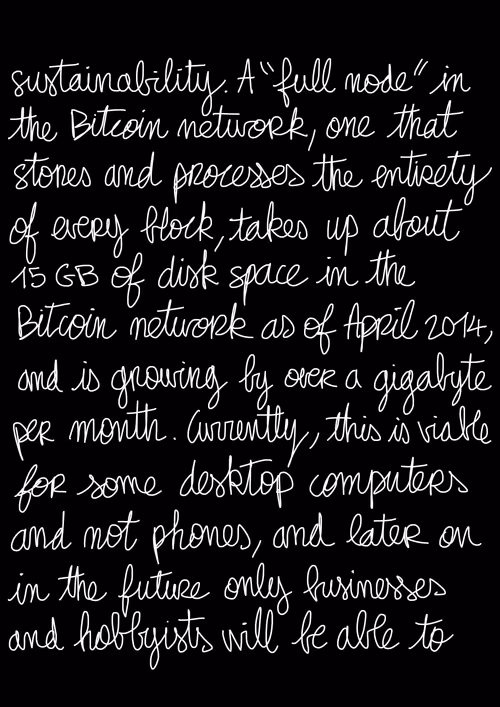 sustainability. A "full node" in
the Bitcoin network, one that
stores and processes the entirety
of every block, takes up about
15 GB of disk space in the
Bitcoin network as of April 2014,
and is growing by over a gigabyte
per month. Currently, this is viable
for some desktop computers
and not phones, and later on
in the future only businesses
and hobbyists will be able to